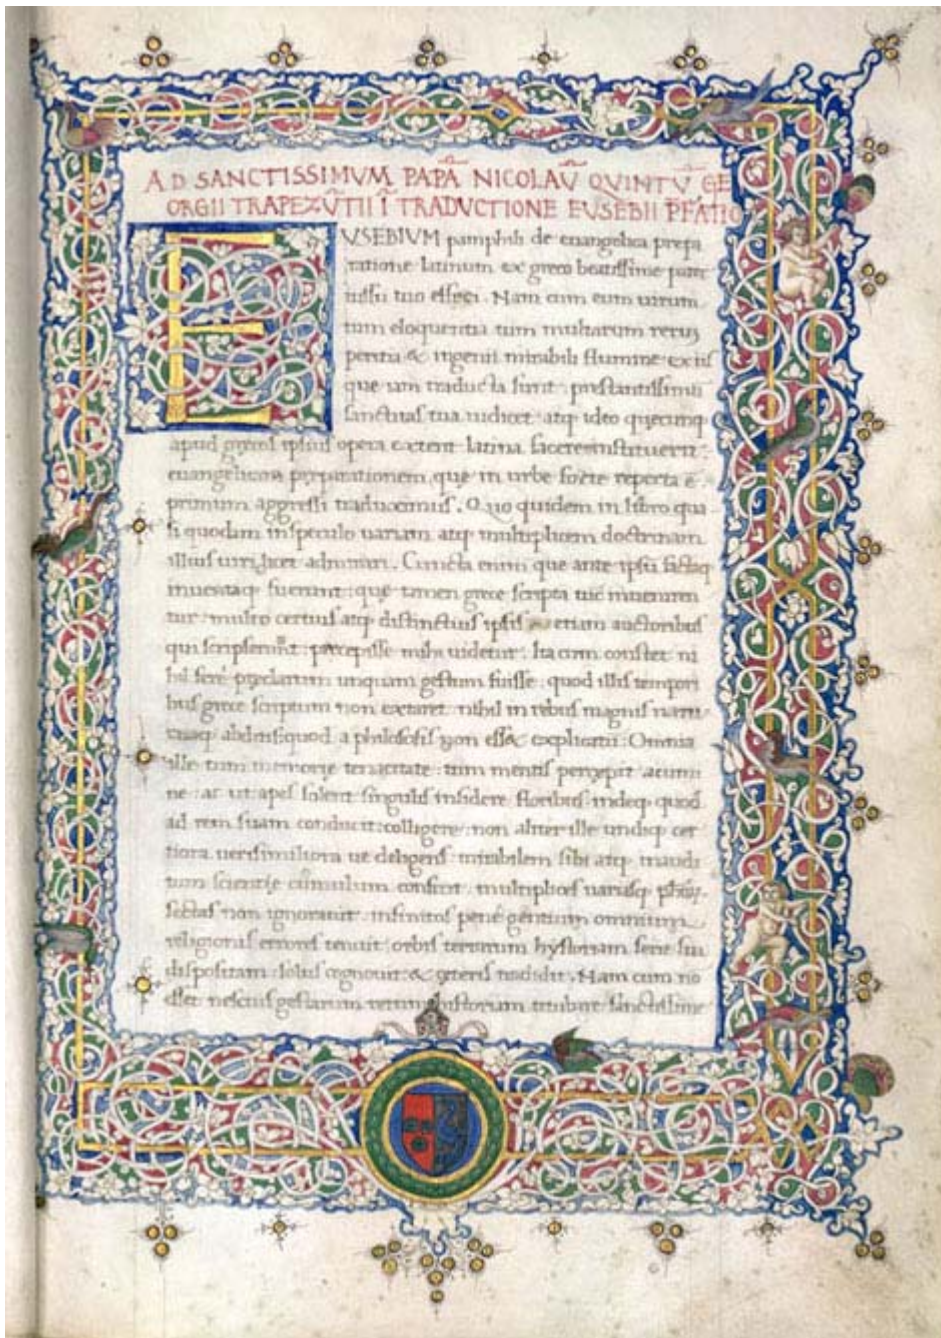 AD SANCTISSIMVM PAPĀ NICOLAV̄ QVINTV̄ GE
ORGII TRAPEZV̄TII Ī TRADVCTIONE EVSEBII P̄FATIO
EUSEBIUM pamphili de euangelica prepa
ratione latinum ex greco beatissime pater
iussu tuo effeci. Nam cum eum uirum
tum eloquentia tum multarum rerum
peritia & ingenii mirabili flumine ex iis
que iam traducta sunt prestantissimum
sanctitas tua iudicet atq ideo quecunq
apud grecos ipsius opera extent latina facere instituerit
euangelicam preparationem que in urbe forte reperta ē
primum aggressi traduximus. Quo quidem in libro qua
si quodam in speculo uariam atq multiplicem doctrinam
illius uiri licet admirari. Cuncta enim que ante ipsū
inuentaq fuerunt que tamen grece scripta tūc inueniren
tur multo certius atq distinctius ipsis etiam auctoribus
qui scripserunt percepisse mihi uidetur. Ita cum constet ni
hil fere preclarum unquam gestum fuisse quod illis tempori
bus grece scriptum non extaret nihil in rebus magnis natu
raq abditis quod a philosofis non esset explicatū. Omnia
ille tum memorie tenacitate tum mentis percepit acumi
ne ac ut apes solent singulis insidere floribus indeq quod
ad rem suam conducit colligere non aliter ille undiq cer
tiora uerisimiliora ue deligens mirabilem sibi atq inaudi
tum scientie cumulum confecit multiplices uariasq
sectas non ignorauit infinitos pene gentium omnium
religionis errores tenuit orbis terrarum hystoriam serie sua
dispositam solus cognouit & ceteris tradidit. Nam cum no
esset nescius gestarum rerum historiam sanctissime